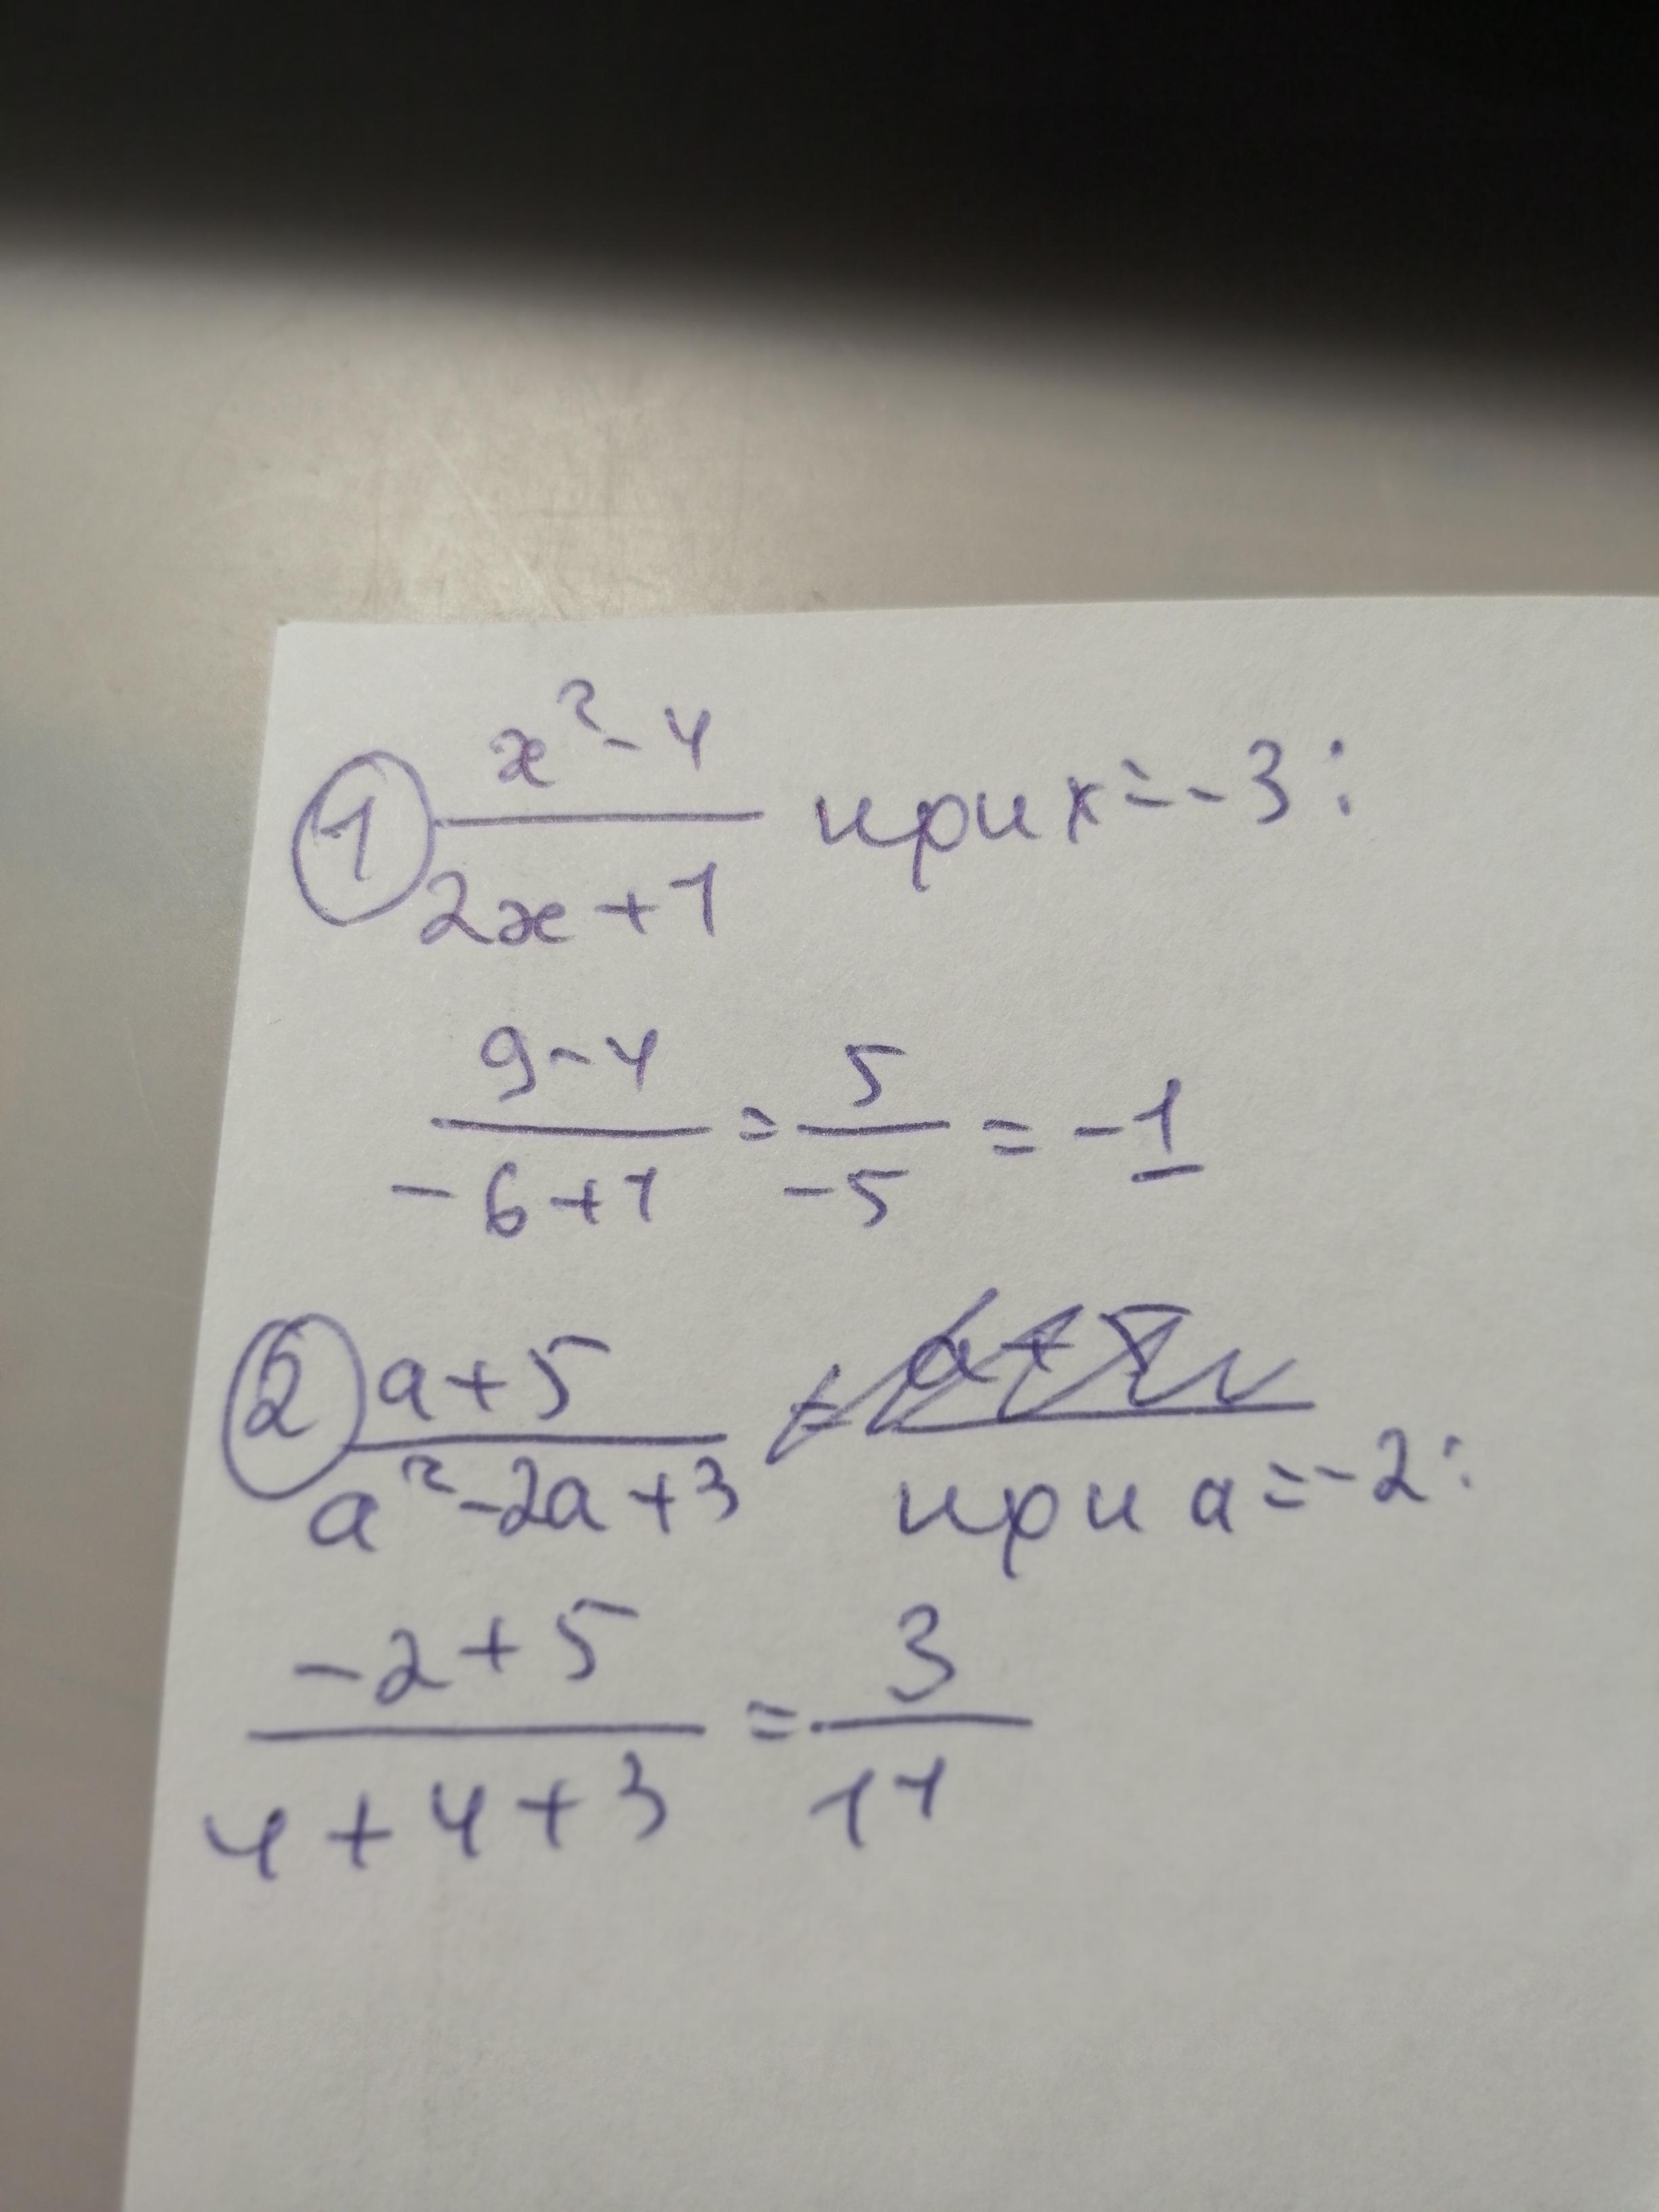 ① x² - 4
2x + 1 при x = -3:
9 - 4
-6 + 1 = 5
-5 = -1
② a + 5
a² - 2a + 3 при a = -2:
-2 + 5
4 + 4 + 3 = 3
11